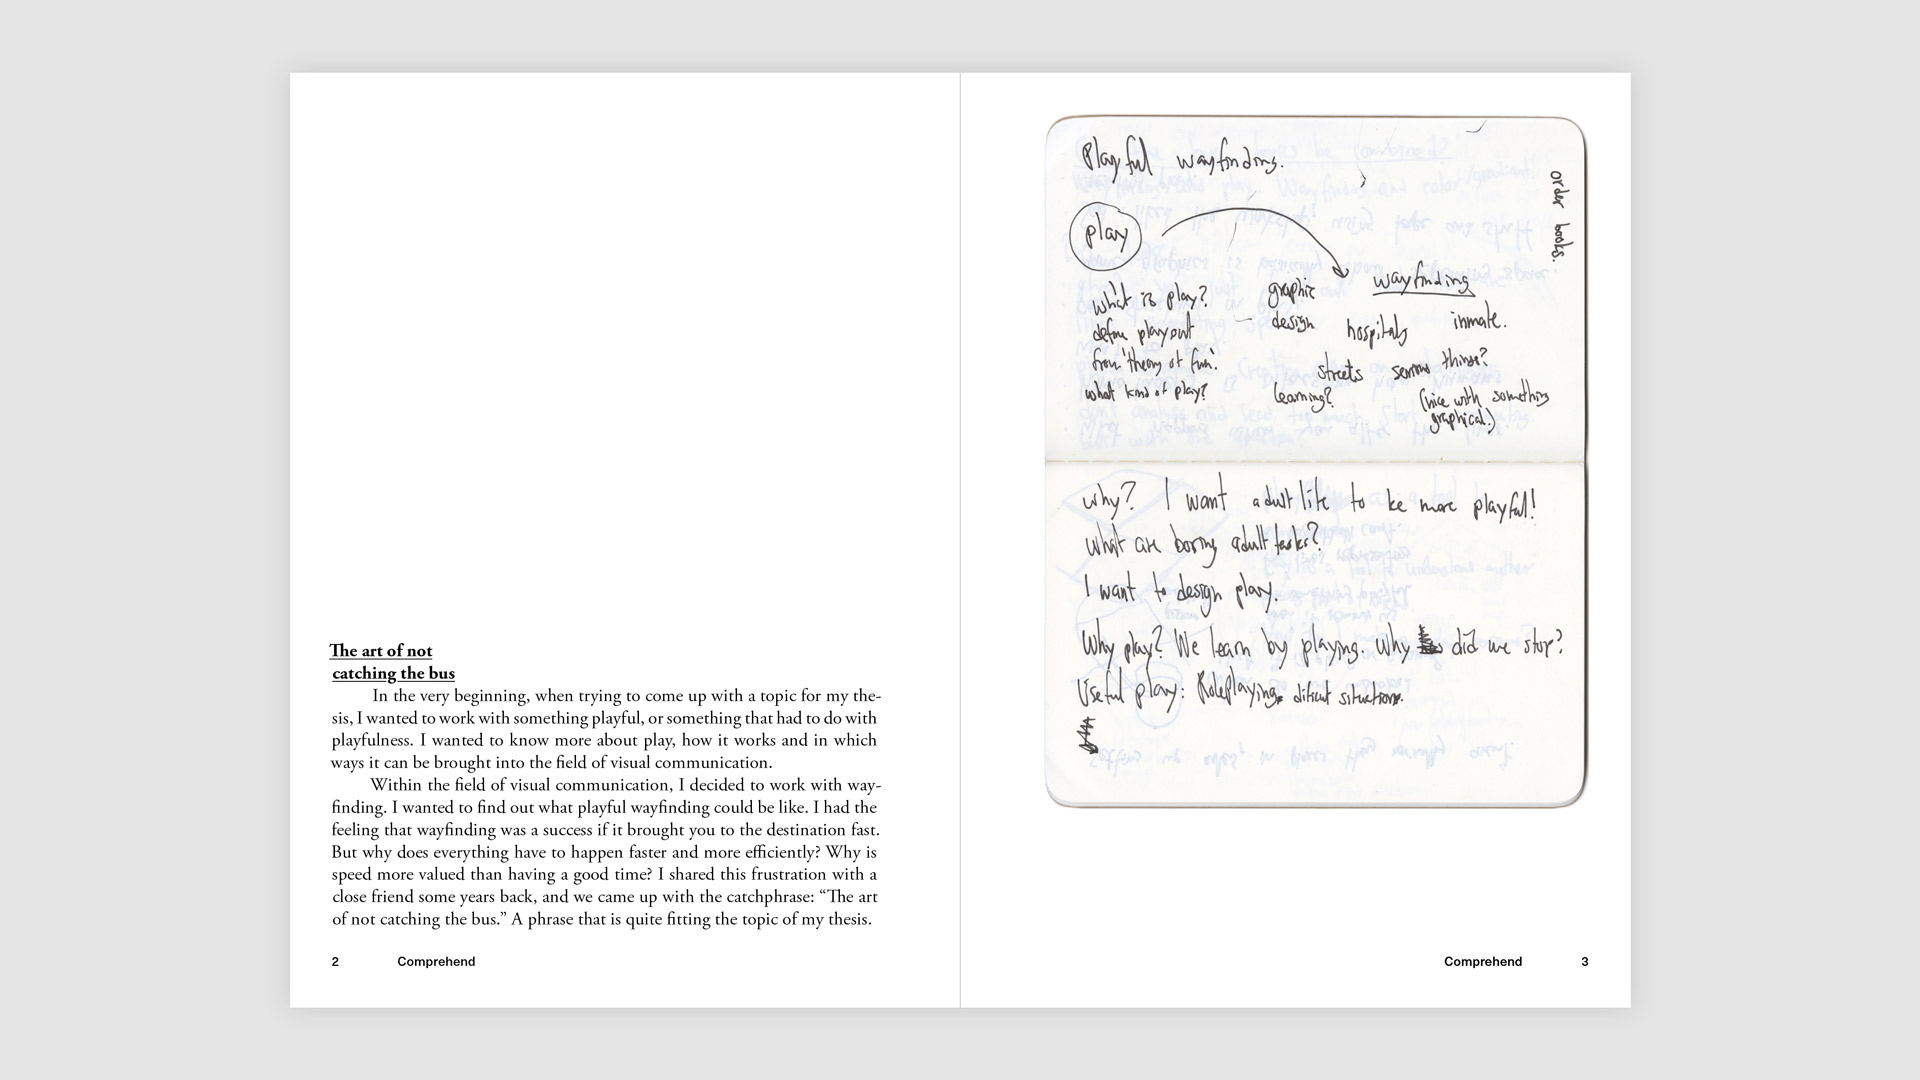 The art of not
catching the bus
In the very beginning, when trying to come up with a topic for my the-
sis, I wanted to work with something playful, or something that had to do with
playfulness. I wanted to know more about play, how it works and in which
ways it can be brought into the field of visual communication.
Within the field of visual communication, I decided to work with way-
finding. I wanted to find out what playful wayfinding could be like. I had the
feeling that wayfinding was a success if it brought you to the destination fast.
But why does everything have to happen faster and more efficiently? Why is
speed more valued than having a good time? I shared this frustration with a
close friend some years back, and we came up with the catchphrase: “The art
of not catching the bus.” A phrase that is quite fitting the topic of my thesis.
2 Comprehend
Playful wayfinding.
order books.
play
what is play?
define play out
from 'theory of fun'.
what kind of play?
graphic
design
wayfinding
hospitals
inmate.
streets
things?
learning?
(nice with something
graphical.)
why? I want adult life to be more playful!
What are boring adult tasks?
I want to design play.
Why play? We learn by playing. Why did we stop?
Useful play: Roleplaying. dificult situations.
Comprehend 3